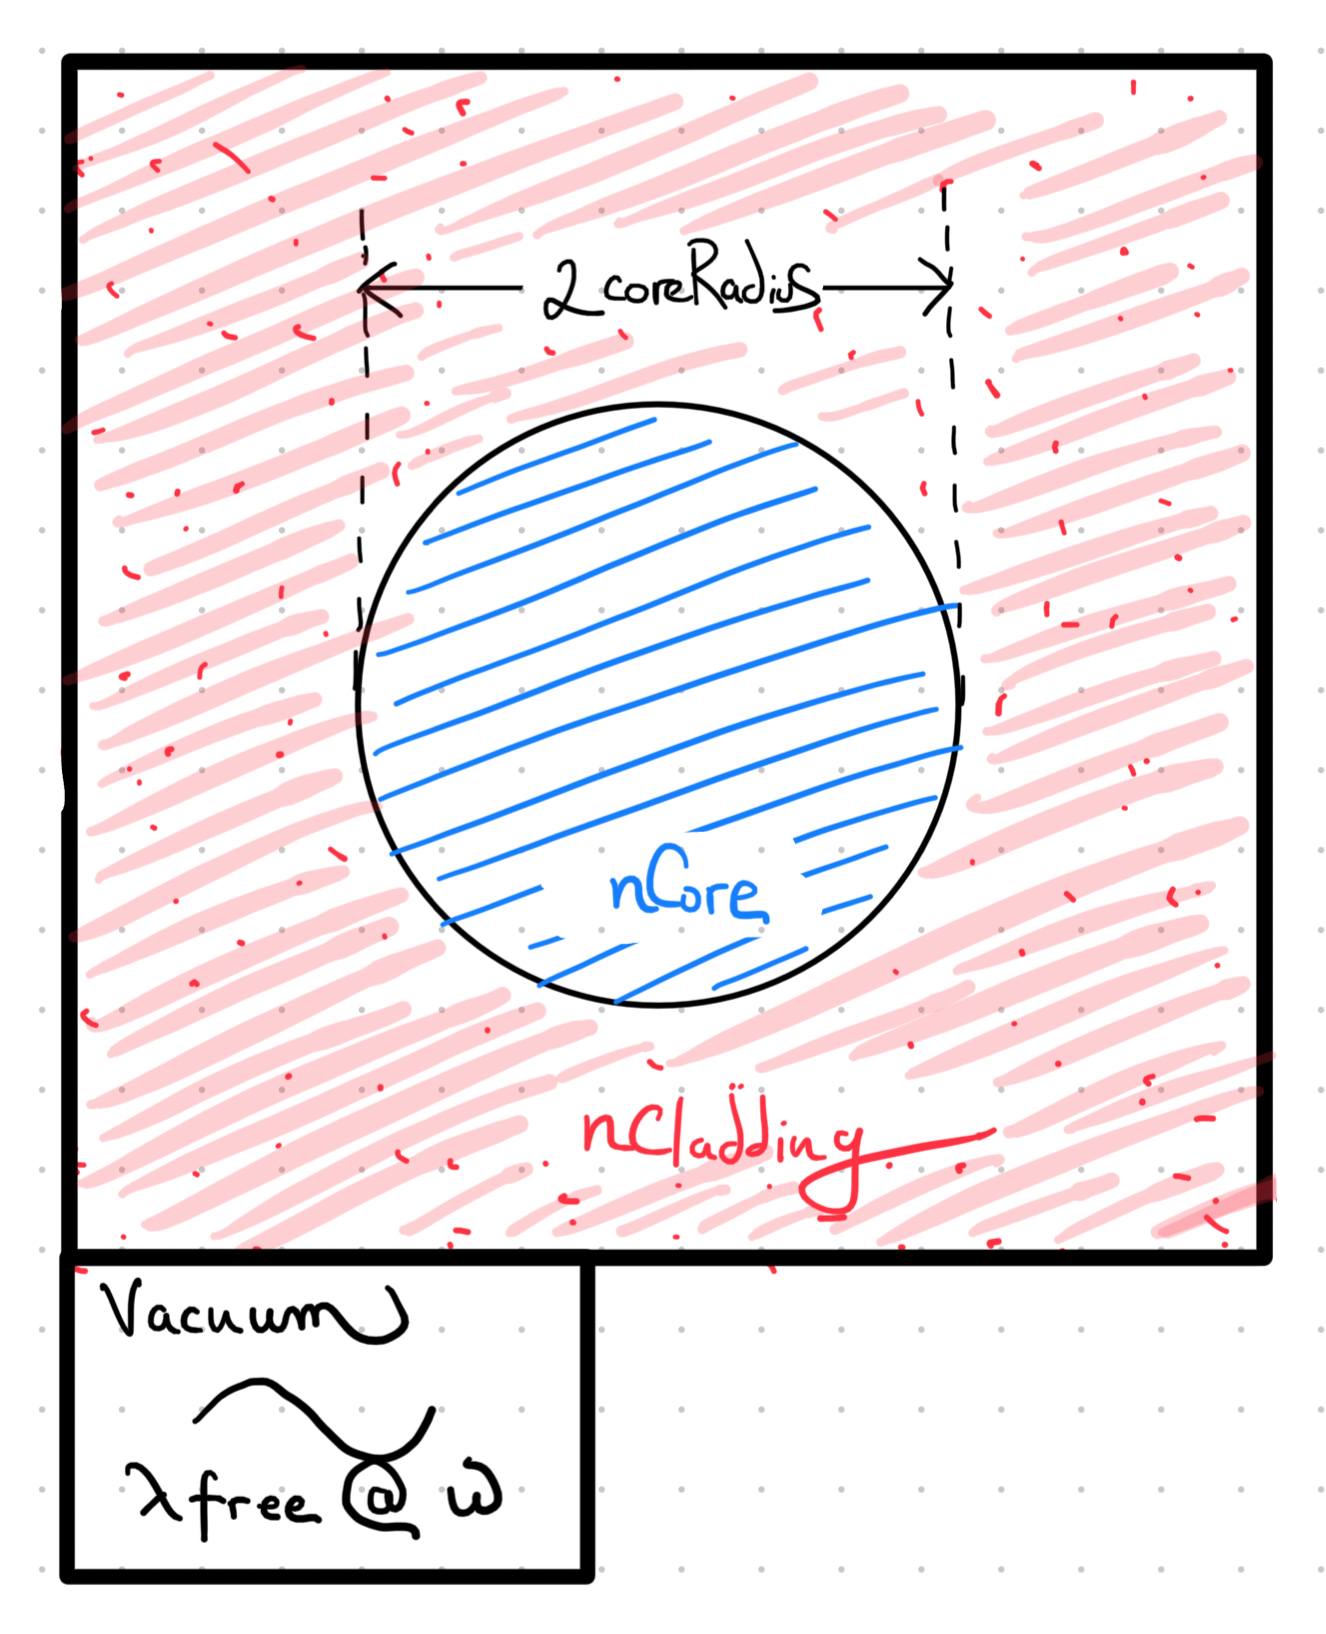 2coreRadius
nCore
nCladding
Vacuum
λfree @ ω